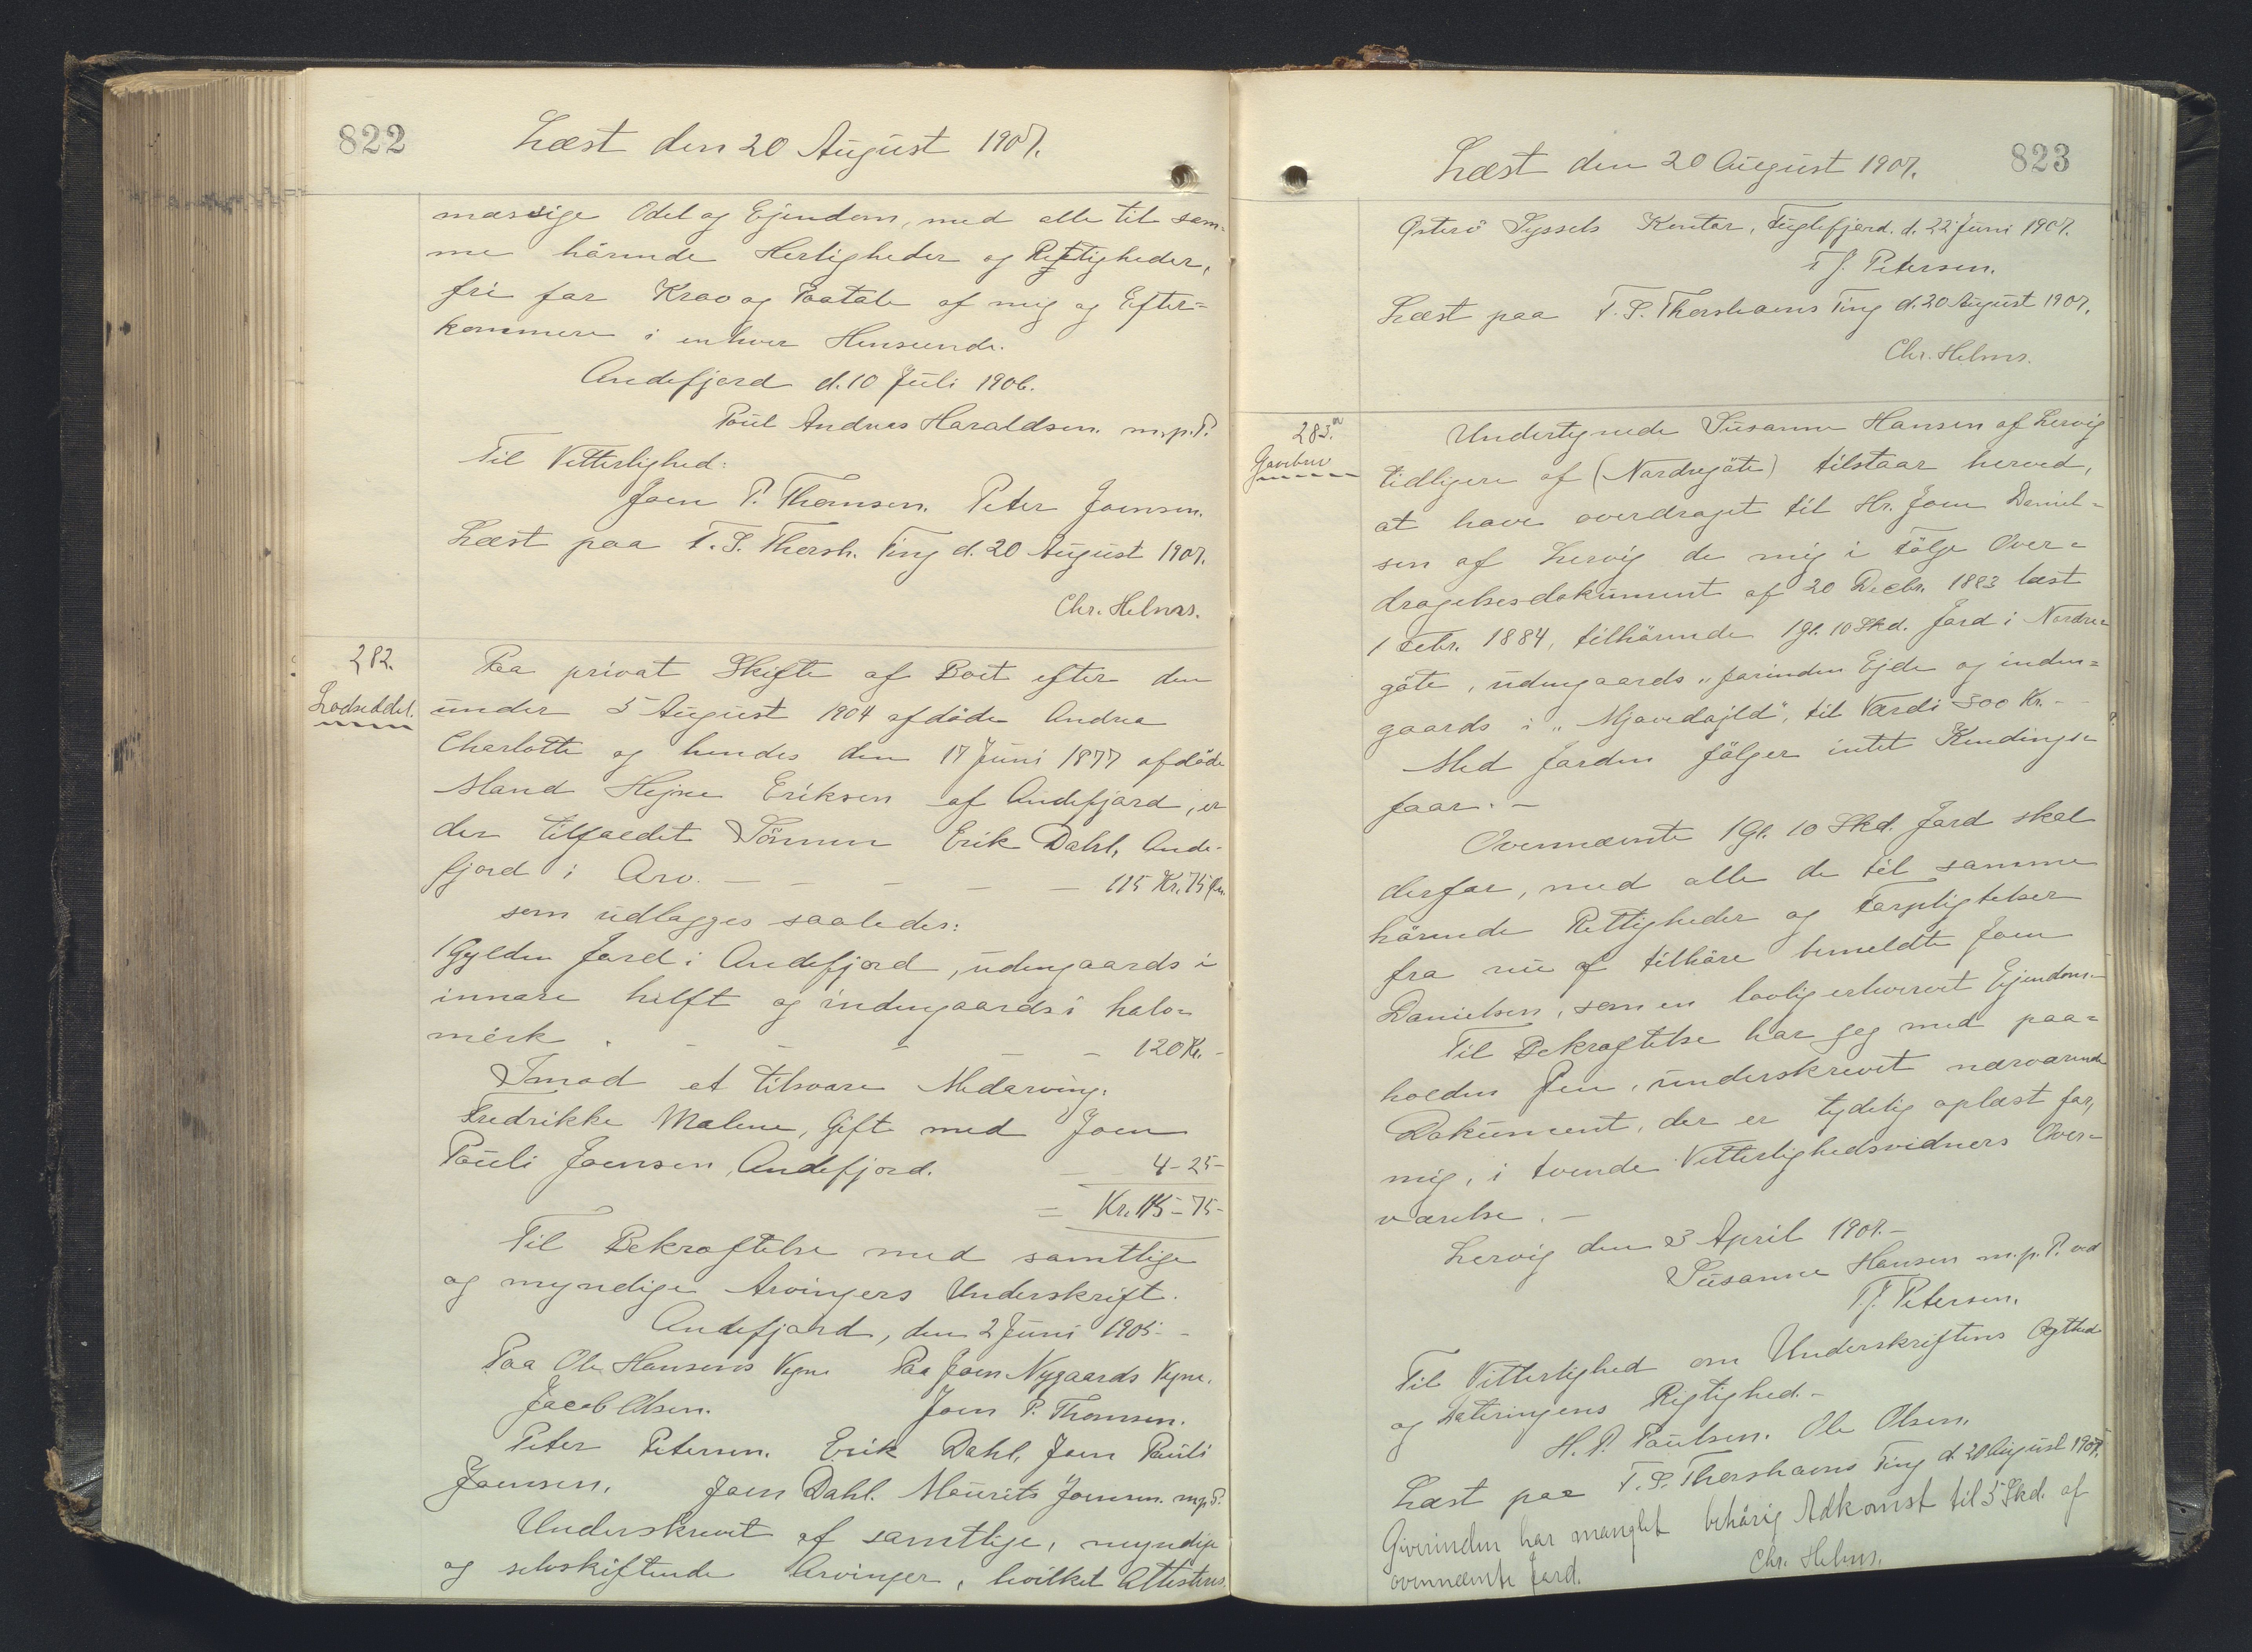 822
Læst den 20 August 1907.
mæssige Odel og Ejendom, med alle til sam-
me hörende Herligheder og Rettigheder,
fri for Krav og Paatale af mig og Efter=
kommere i enhver Henseende.
Andefjord d. 10 Juli 1906.
Poul Andreas Haraldsen. m.p.P.
Til Vitterlighed:
Joen P. Thomsen. Peter Joensen.
Læst paa T. S. Thorsh. Ting d. 20 August 1907.
Chr. Helms.
282.
Lodseddel.
Paa privat Skifte af Boet efter den
under 5 August 1904 afdöde Andrea
Charlotte og hendes den 17 Juni 1877 afdöde
Mand Hejne Eriksen af Andefjord, er
der tilfaldet Sönnen Erik Dahl, Ande-
fjord i Arv. — — — — — 115 Kr. 75 Øre.
som udlægges saaledes:
1 Gylden Jord i Andefjord, udengaards i
innare helft og indengaards i halv=
mörk. — — — — 120 Kr. -
Imod at tilsvare Medarving:
Fredrikke Malene, Gift med Joen
Pauli Joensen, Andefjord. — 4-25-
= Kr. 115-75-
Til Bekræftelse med samtlige
og myndige Arvingers Underskrift.
Andefjord, den 2 Juni 1905.-
Paa Ole Hansens Vegne Paa Joen Nygaards Vegne.
Jacob Olsen. Joen P. Thomsen.
Peter Petersen. Erik Dahl, Joen Pauli
Joensen, Joen Dahl. Mourits Joensen. m.p.P.
Underskrevet af samtlige, myndige
og selvskiftende Arvinger, hvilket Attesteres.
823
Læst den 20 August 1907.
Østerö Syssels Kontor, Fuglefjord. d. 22 Juni 1907.
T J. Petersen.
Læst paa T. S. Thorshavns Ting d. 20 August 1907.
Chr. Helms.
283.a
Gavebrev
Undertegnede Susanne Hansen af Lervig
tidligere af (Nordregöte) tilstaar herved,
at have overdraget til Hr. Joen Daniel=
sen af Lervig de mig i Fölge Over=
dragelsesdokument af 20 Decbr. 1883 læst
1 Febr. 1884, tilhörende 1 Gl. 10 Skd. Jord i Nordre=
göte, udengaards "forinden Ejde og inden=
gaards i "Mjavedajld", til Værdi 500 Kr. - -
Med Jorden fölger intet Kendings=
faar. -
Ovennævnte 1 Gl. 10 Skd. Jord skal
derfor, med alle de til samme
hörende Rettigheder og Forpligtelser
fra nu af tilhöre bemeldte Joen
Danielsen, som en lovlig erhvervet Ejendom.-
Til Bekræftelse har jeg med paa=
holden Pen, underskrevet nærværende
Dokument, der er tydelig oplæst for,
mig, i tvende Vitterlighedsvidners Over=
værelse. -
Lervig den 3 April 1907.-
Susanne Hansen m.p.P. ved
T. J. Petersen.
Til Vitterlighed om Underskriftens Ægthed
og Dateringens Rigtighed.-
H. P. Poulsen. Ole Olsen.
Læst paa T. S. Thorshavns Ting d. 20 August 1907.
Giverinden har manglet behörig Adkomst til 5 Skd. af
ovennævnte Jord. Chr. Helms.